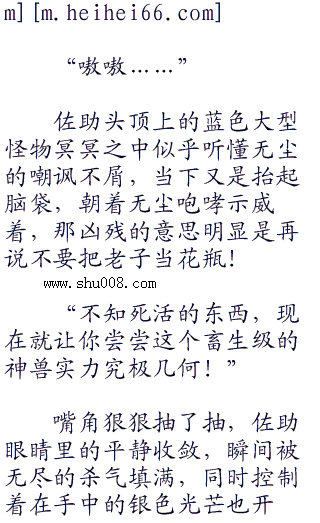 m][m.heihei66.com]
“嗷嗷……”
佐助头顶上的蓝色大型
怪物冥冥之中似乎听懂无尘
的嘲讽不屑，当下又是抬起
脑袋，朝着无尘咆哮示威
着，那凶残的意思明显是再
说不要把老子当花瓶！
www.shu008.com
“不知死活的东西，现
在就让你尝尝这个畜生级的
神兽实力究极几何！”
嘴角狠狠抽了抽，佐助
眼睛里的平静收敛，瞬间被
无尽的杀气填满，同时控制
着在手中的银色光芒也开